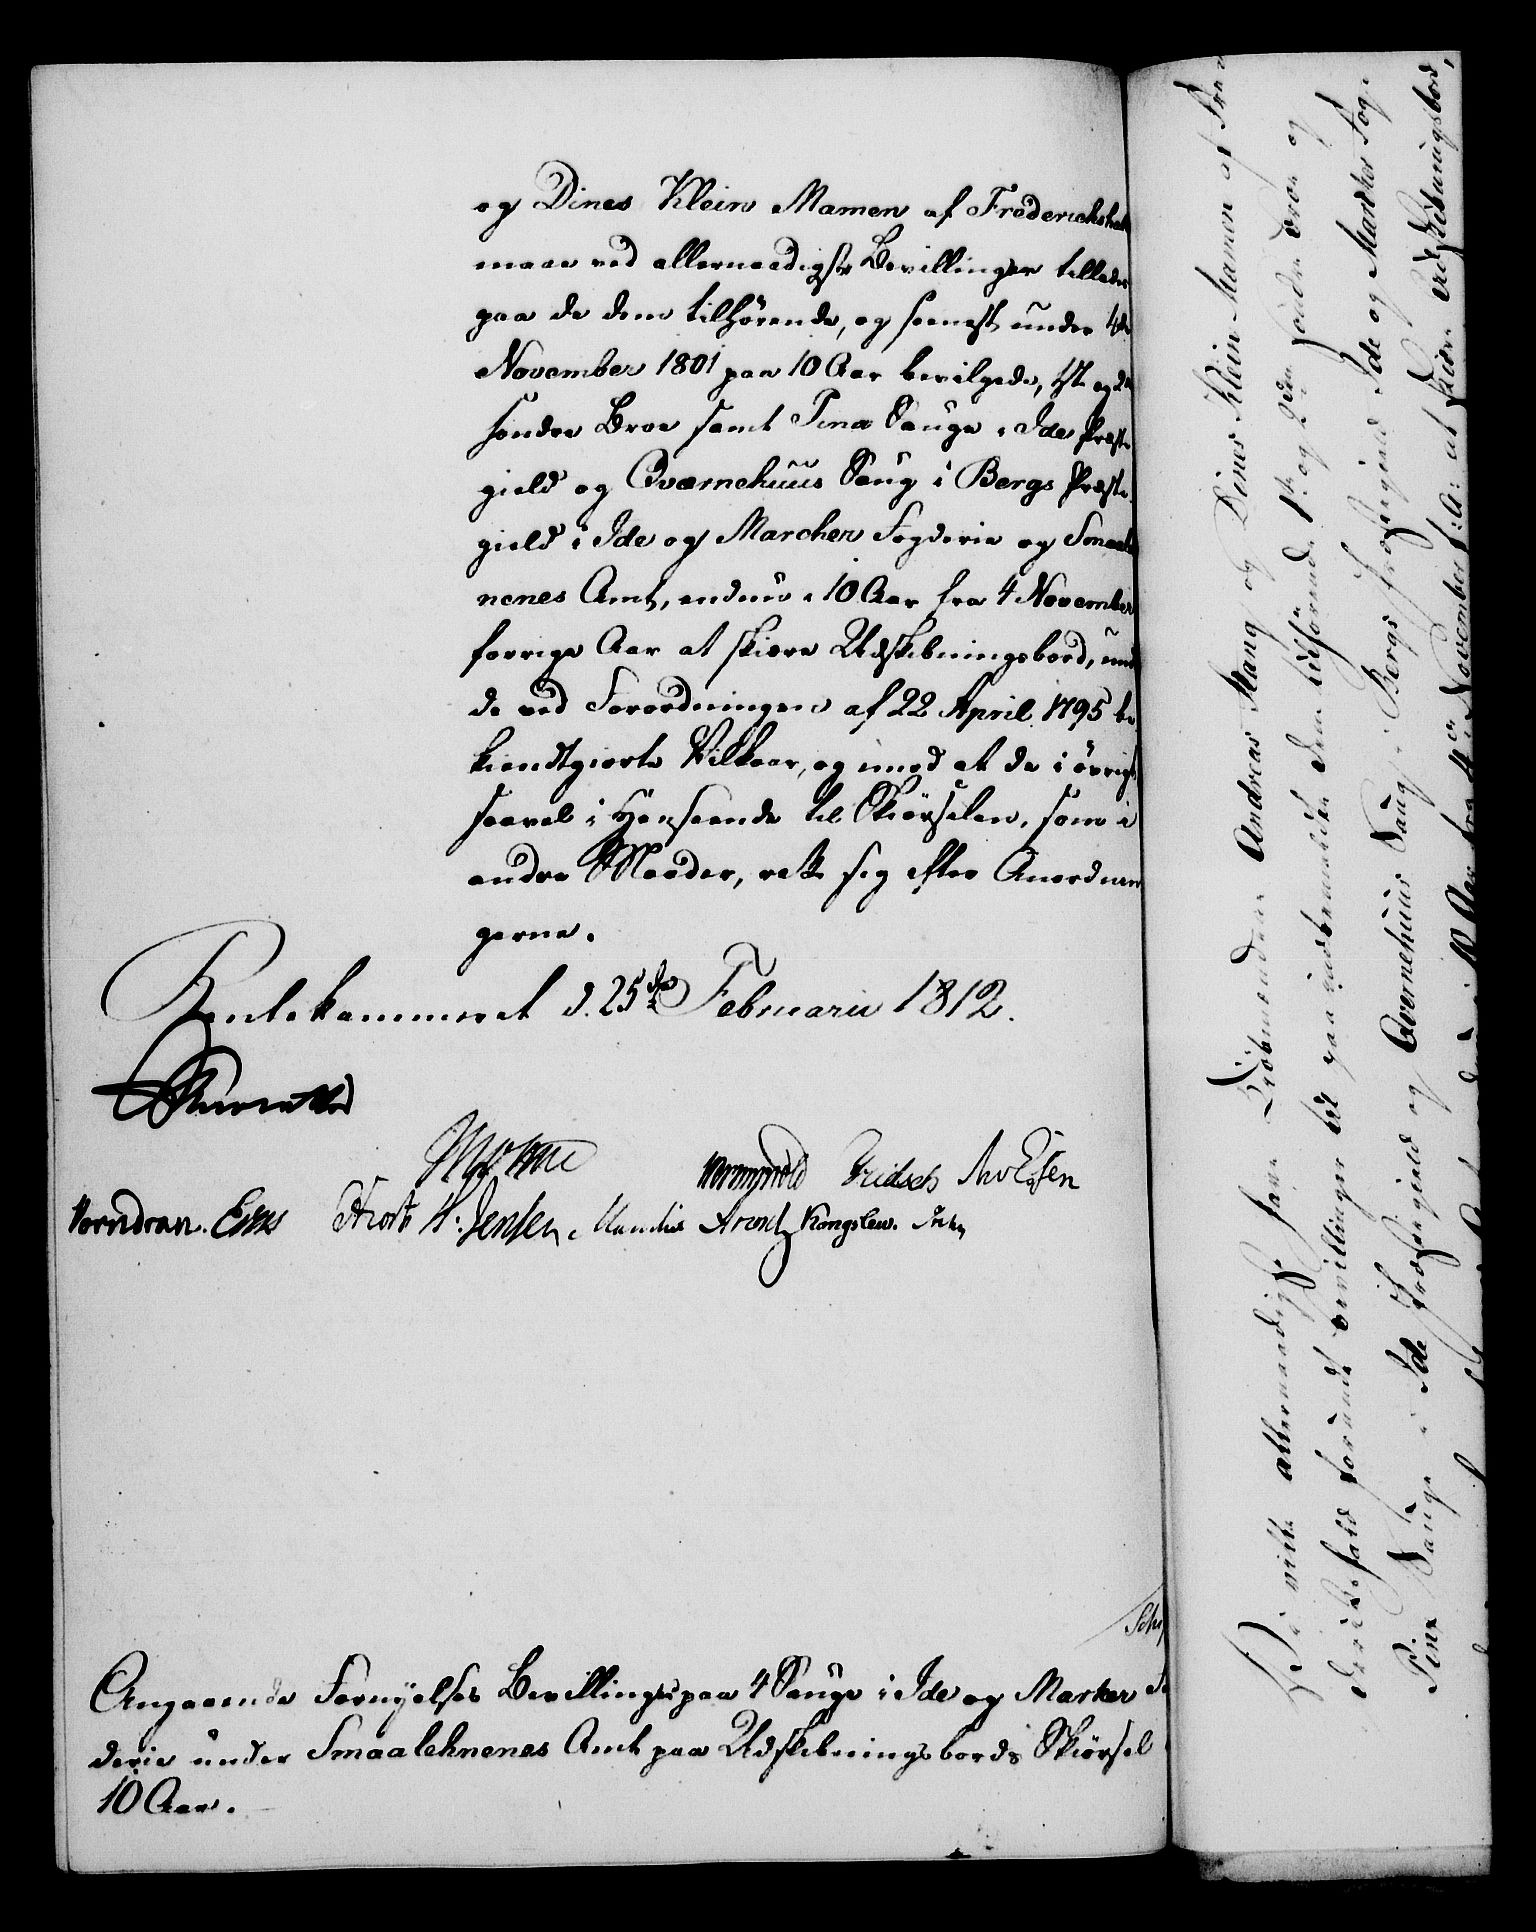 og Dines Klein Mamen af Frederichshal
maae ved allernaadigste Bevillinger tillades
paa de dem tilhørende, og seenest under 4de
November 1801 paa 10 Aar bevilgede, 1ste og 2den
søndre Broe samt Tina Sauge i Ide Præste
gield og Qværnehuus Saug i Bergs Præste
gield i Ide og Marcher Fogderie og Smaaleh
nenes Amt, endnu i 10 Aar fra 4 November
forrige Aar at skiære Udskibningsbord, un
de ved Forordningen af 22 April 1795 be
kiendtgiorte Vilkaar, og imod at de i øvrigt
saavel i Henseende til Skiørselen, som i
andre Maader, rette sig efter Anordnin
gerne.
Rentekammeret d. 25de Februarii 1812.
Wormskiold Fridsch
Vorndran. Hiort H: Jensen. Arentz Kongslew.
Angaaende Fornyelses Bevillinger paa 4 Sauge i Ide og Marker Fo
derie under Smaalehnenes Amt paa Udskibningsbords Skiørsel
10 Aar.
Vi ville allernaadigst have Kiøbmændene Andreas Stang og Dines Klein Mamen af Fre
deriks hald forundt bevillinger til paa indbemeldte dem tilhørende 1ste og 2den søndre Broe og
Tina Sauge i Ide Præstegield og Qvernehuus Saug i Bergs Præstegield i Ide og Markers Fog
i 10 Aar fra 4de November f: A: at skiære Udskibningsbord,